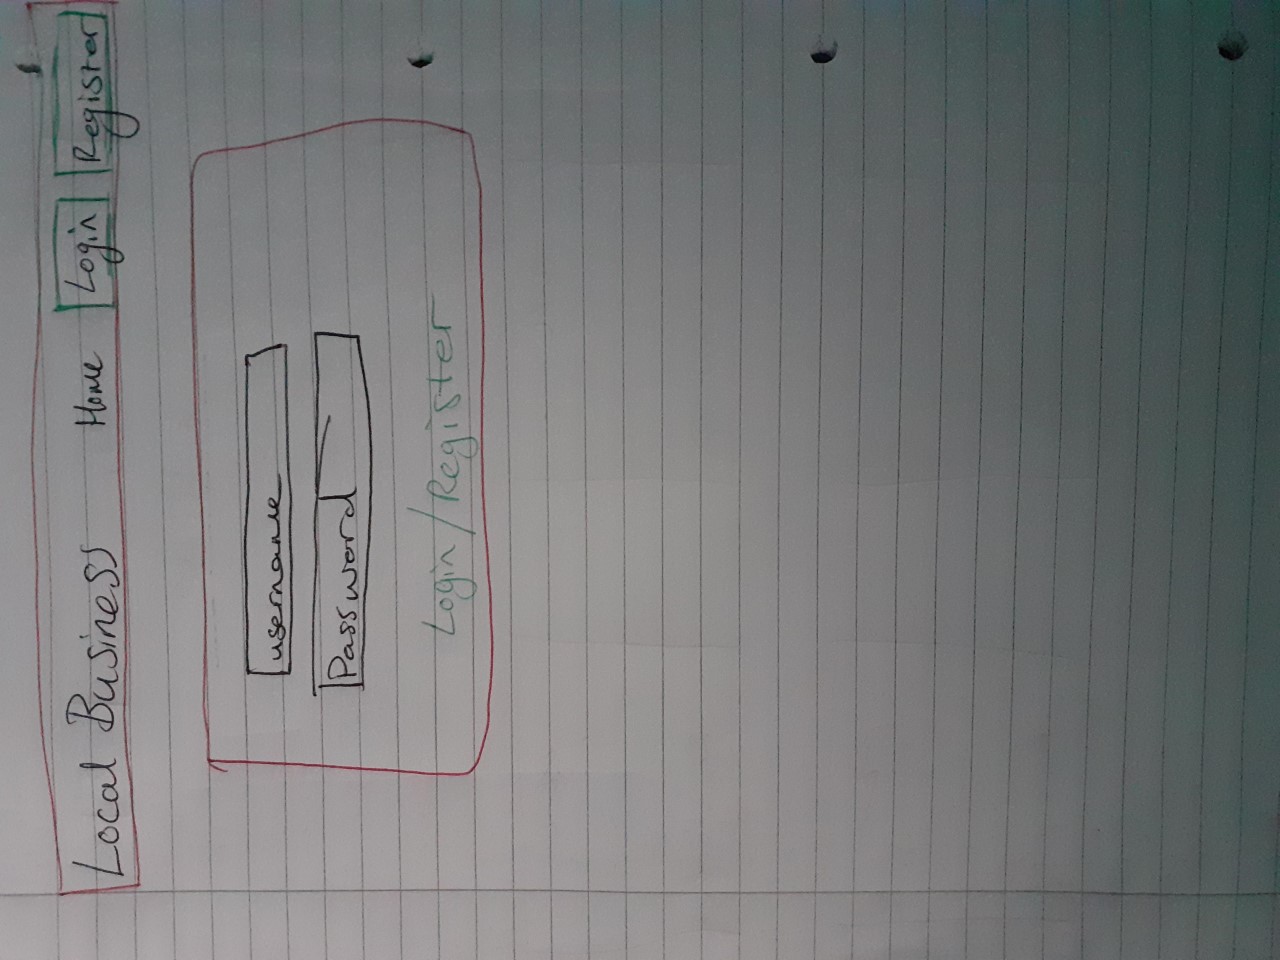 Local Business Home Login Register
username
Password
Login/Register